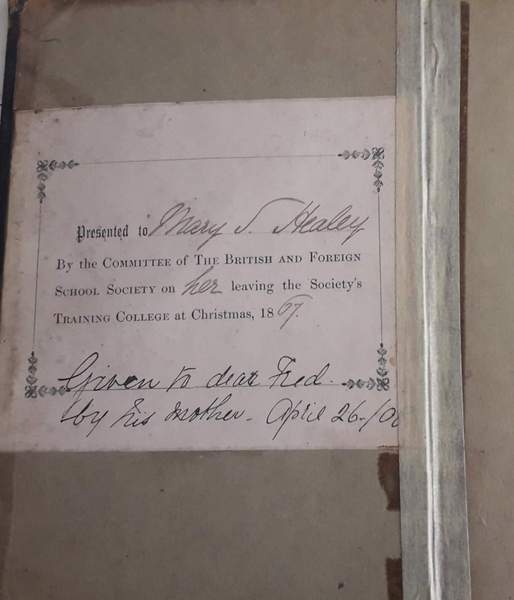 Presented to Mary S. Healey
By the COMMITTEE of THE BRITISH AND FOREIGN
SCHOOL SOCIETY on her leaving the Society's
TRAINING COLLEGE at Christmas, 1867.
Given to dear Fred.
by his mother - April 26-/00